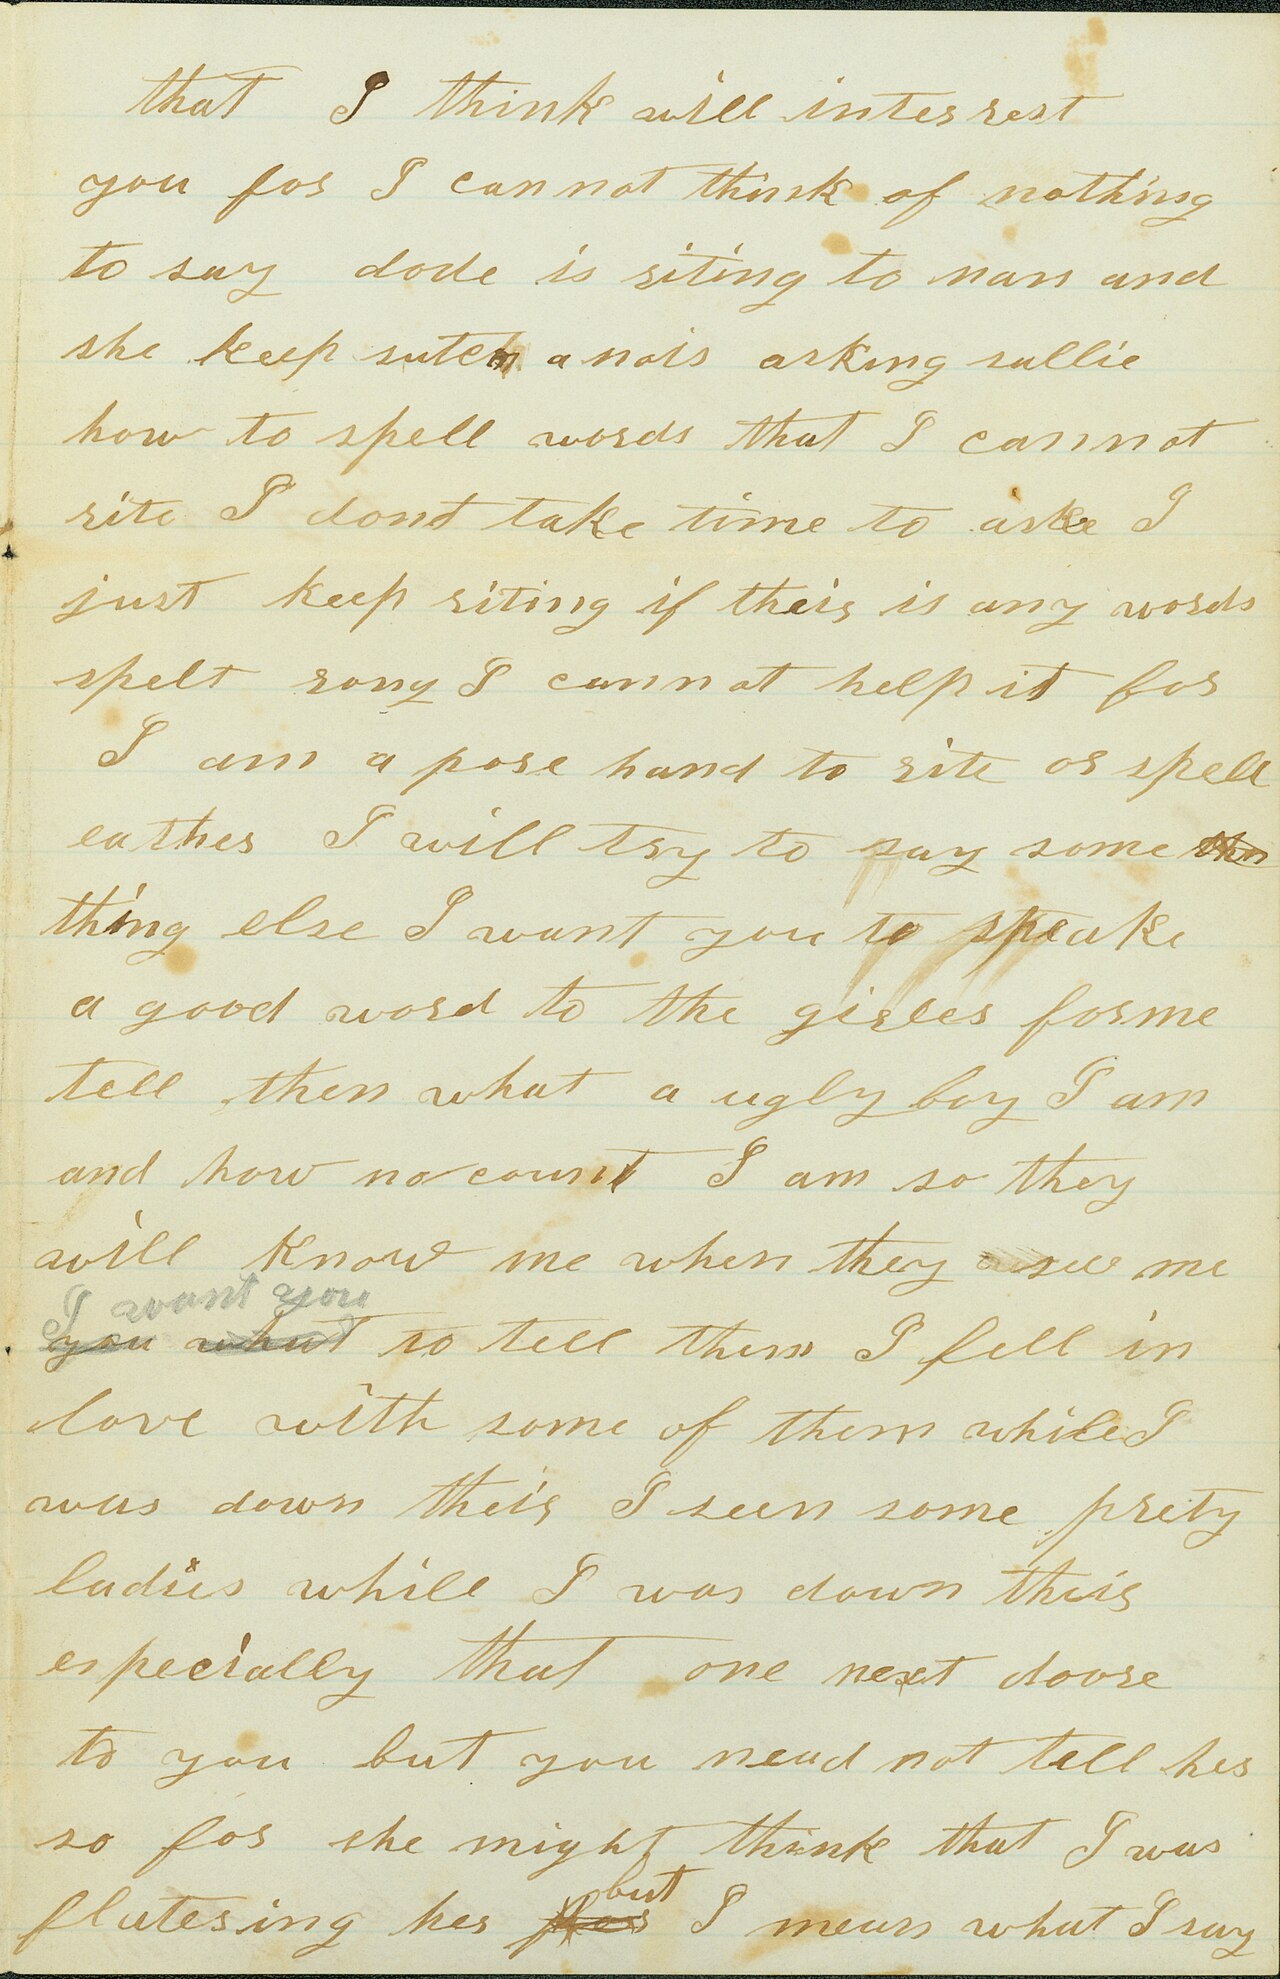 that I think will interrest
you for I cannot think of nothing
to say dode is riting to nan and
she keep sutch a nois asking sallie
how to spell words that I cannot
rite I dont take time to aske I
just keep riting if their is any words
spelt rong I cannot help it for
I am a pore hand to rite or spell
eather I will try to say some thn
thing else I want you to speake
a good word to the girles for me
tell them what a ugly boy I am
and how no count I am so they
will know me when they see me
I want you
you what to tell them I fell in
love with some of them while I
was down their I seen some prety
ladies while I was down their
especially that one next doore
to you but you nead not tell her
so for she might think that I was
but
flatering her for I mean what I say